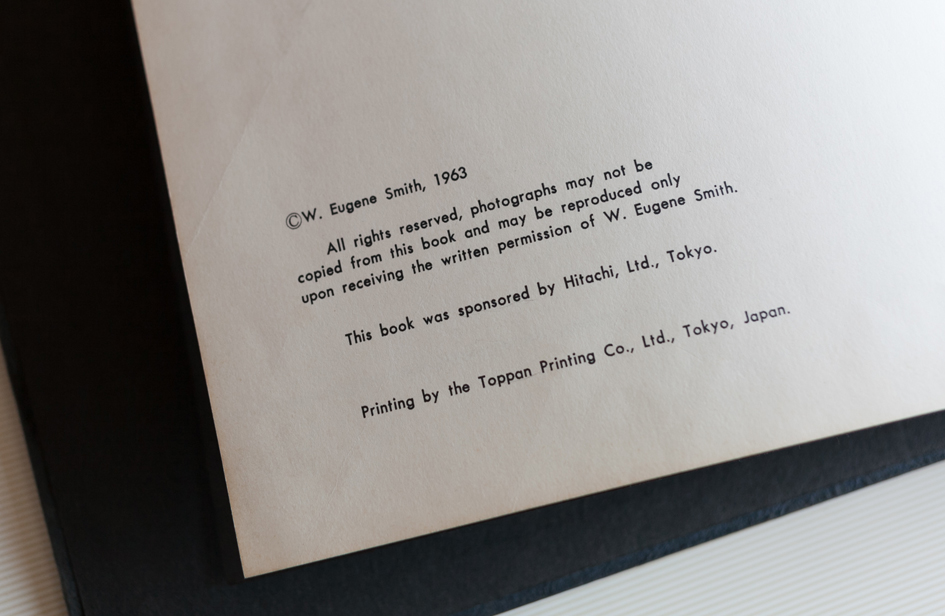 ©W. Eugene Smith, 1963
All rights reserved, photographs may not be
copied from this book and may be reproduced only
upon receiving the written permission of W. Eugene Smith.
This book was sponsored by Hitachi, Ltd., Tokyo.
Printing by the Toppan Printing Co., Ltd., Tokyo, Japan.